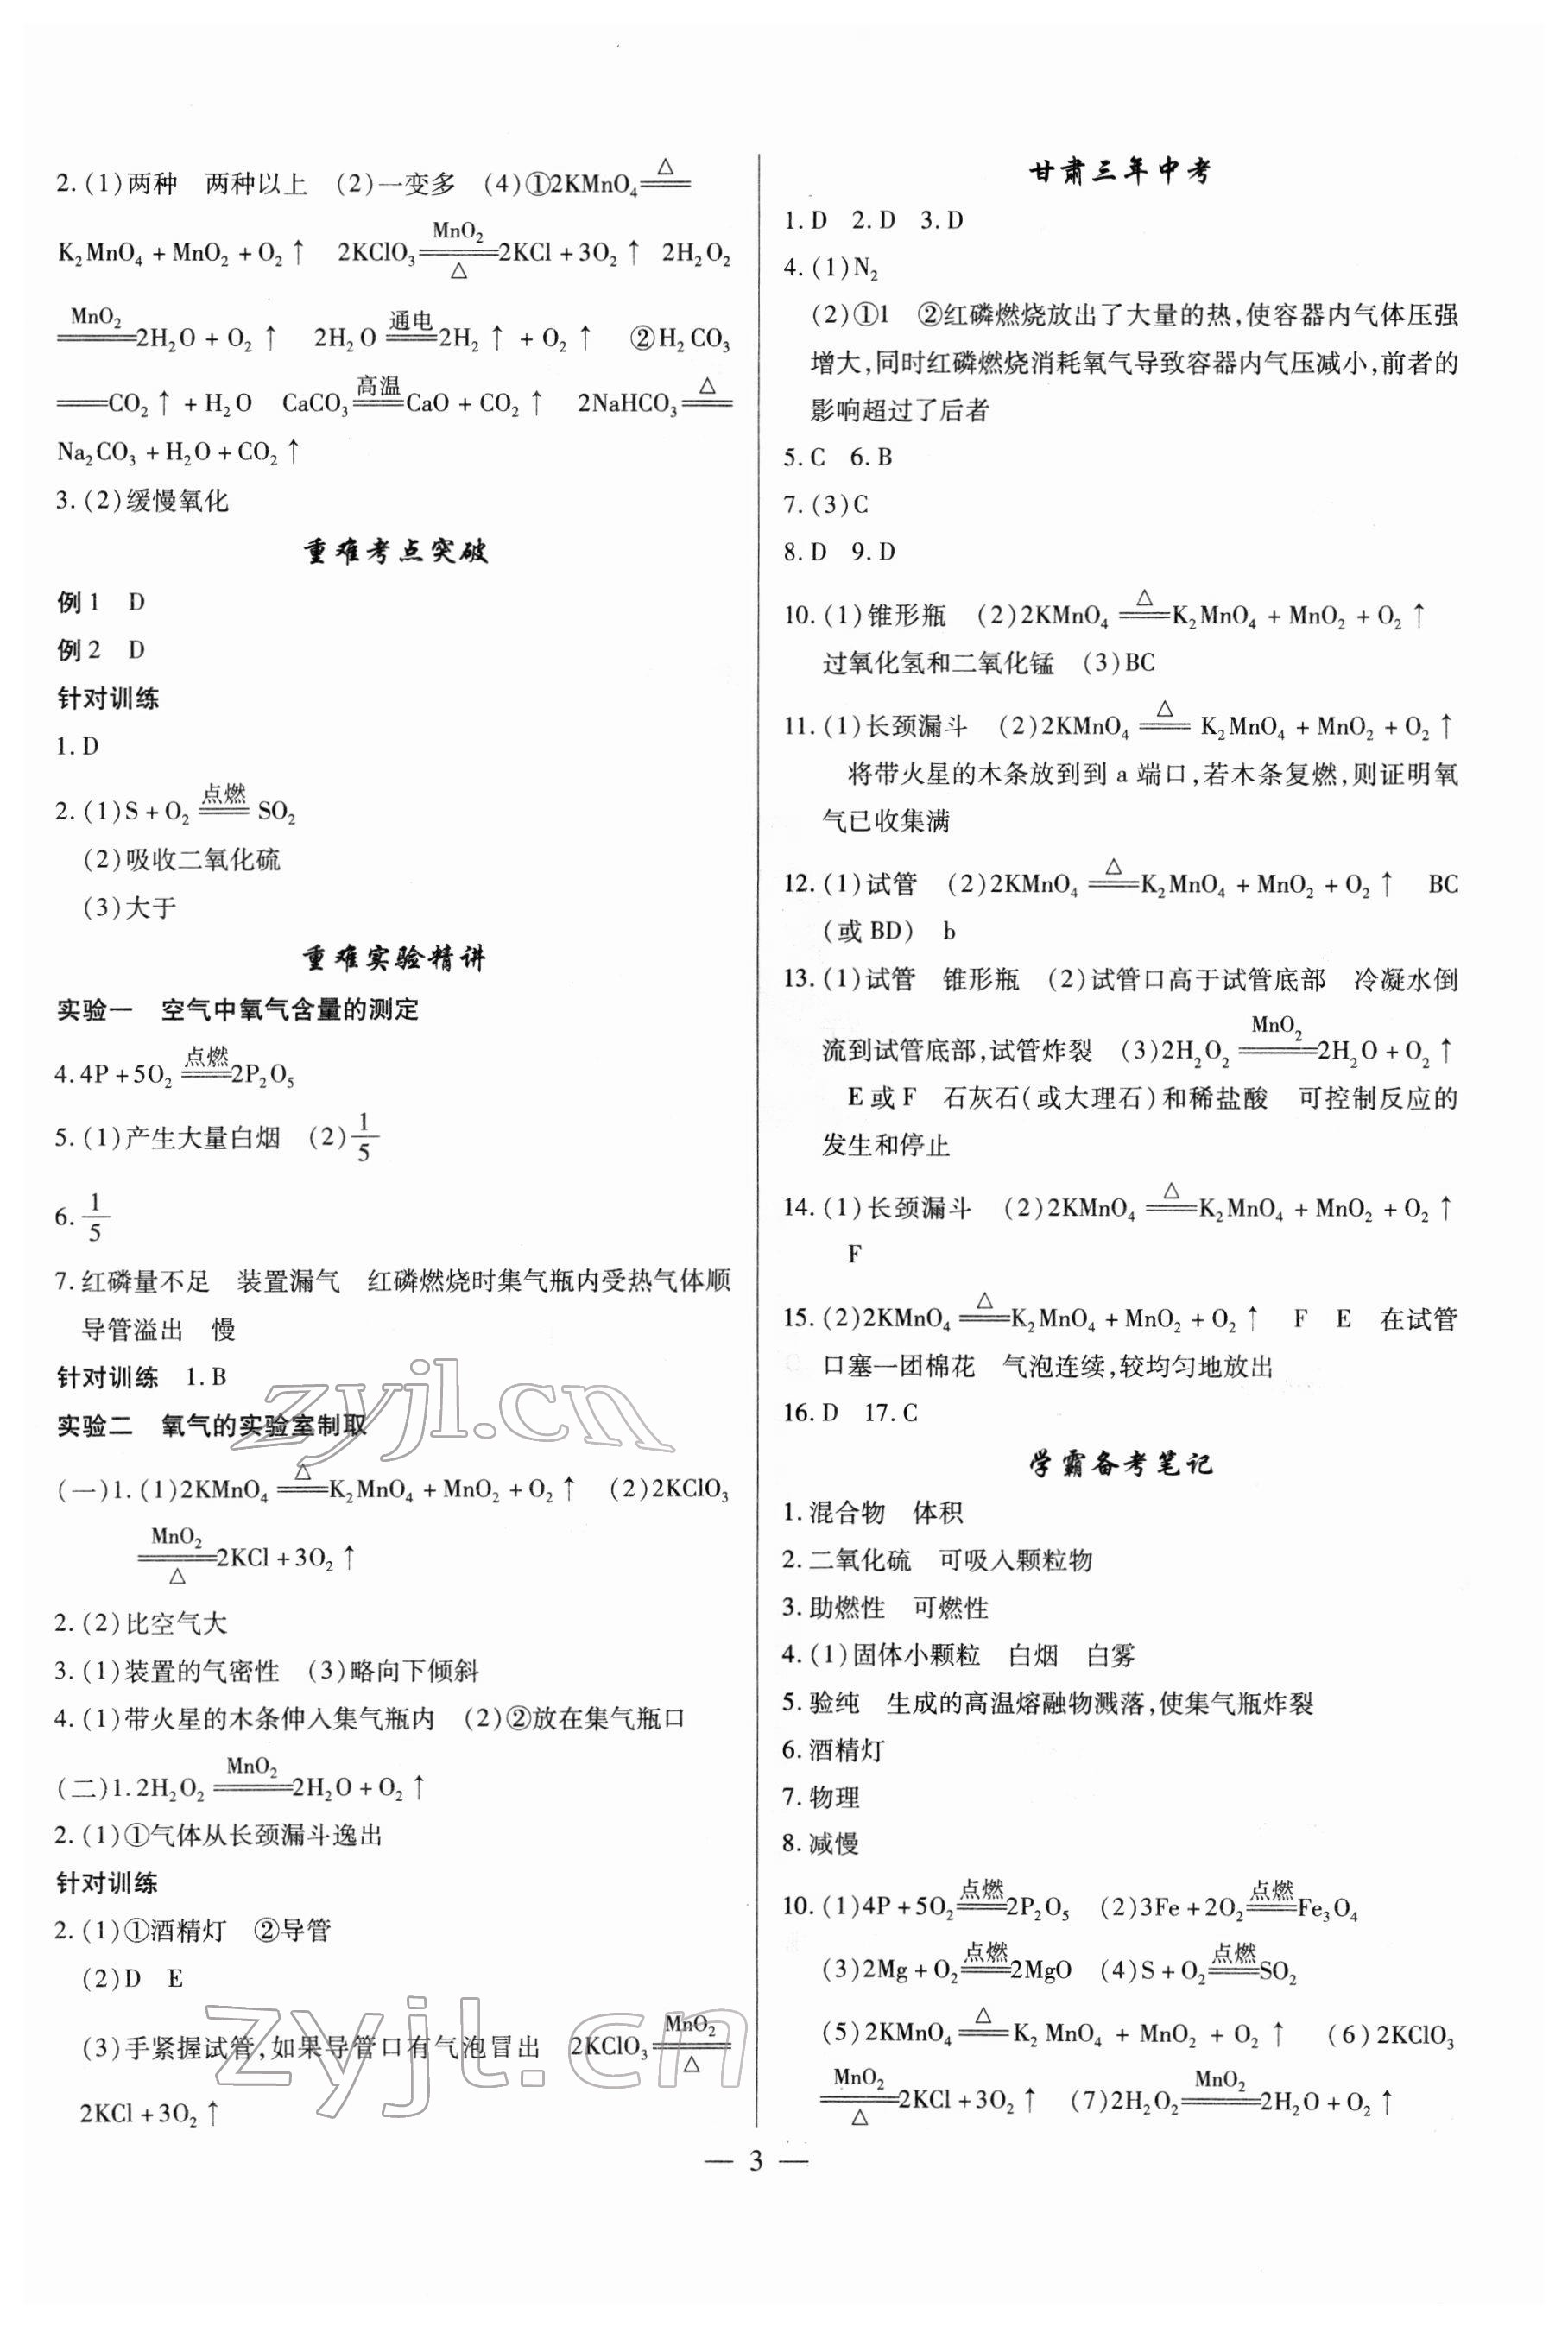 2.(1)两种 两种以上 (2)一变多 (4)①2KMnO₄ ==△==
K₂MnO₄ + MnO₂ + O₂↑ 2KClO₃ ==MnO₂/△== 2KCl + 3O₂↑ 2H₂O₂
==MnO₂== 2H₂O + O₂↑ 2H₂O ==通电== 2H₂↑ + O₂↑ ②H₂CO₃
== CO₂↑ + H₂O CaCO₃ ==高温== CaO + CO₂↑ 2NaHCO₃ ==△==
Na₂CO₃ + H₂O + CO₂↑
3.(2)缓慢氧化
重难考点突破
例1 D
例2 D
针对训练
1.D
2.(1)S + O₂ ==点燃== SO₂
(2)吸收二氧化硫
(3)大于
重难实验精讲
实验一 空气中氧气含量的测定
4.4P + 5O₂ ==点燃== 2P₂O₅
5.(1)产生大量白烟 (2)1/5
6.1/5
7.红磷量不足 装置漏气 红磷燃烧时集气瓶内受热气体顺
导管溢出 慢
针对训练 1.B
实验二 氧气的实验室制取
(一)1.(1)2KMnO₄ ==△== K₂MnO₄ + MnO₂ + O₂↑ (2)2KClO₃
==MnO₂/△== 2KCl + 3O₂↑
2.(2)比空气大
3.(1)装置的气密性 (3)略向下倾斜
4.(1)带火星的木条伸入集气瓶内 (2)②放在集气瓶口
(二)1.2H₂O₂ ==MnO₂== 2H₂O + O₂↑
2.(1)①气体从长颈漏斗逸出
针对训练
2.(1)①酒精灯 ②导管
(2)D E
(3)手紧握试管,如果导管口有气泡冒出 2KClO₃ ==MnO₂/△==
2KCl + 3O₂↑
甘肃三年中考
1.D 2.D 3.D
4.(1)N₂
(2)①1 ②红磷燃烧放出了大量的热,使容器内气体压强
增大,同时红磷燃烧消耗氧气导致容器内气压减小,前者的
影响超过了后者
5.C 6.B
7.(3)C
8.D 9.D
10.(1)锥形瓶 (2)2KMnO₄ ==△== K₂MnO₄ + MnO₂ + O₂↑
过氧化氢和二氧化锰 (3)BC
11.(1)长颈漏斗 (2)2KMnO₄ ==△== K₂MnO₄ + MnO₂ + O₂↑
将带火星的木条放到到 a 端口,若木条复燃,则证明氧
气已收集满
12.(1)试管 (2)2KMnO₄ ==△== K₂MnO₄ + MnO₂ + O₂↑ BC
(或BD) b
13.(1)试管 锥形瓶 (2)试管口高于试管底部 冷凝水倒
流到试管底部,试管炸裂 (3)2H₂O₂ ==MnO₂== 2H₂O + O₂↑
E或F 石灰石(或大理石)和稀盐酸 可控制反应的
发生和停止
14.(1)长颈漏斗 (2)2KMnO₄ ==△== K₂MnO₄ + MnO₂ + O₂↑
F
15.(2)2KMnO₄ ==△== K₂MnO₄ + MnO₂ + O₂↑ F E 在试管
口塞一团棉花 气泡连续,较均匀地放出
16.D 17.C
学霸备考笔记
1.混合物 体积
2.二氧化硫 可吸入颗粒物
3.助燃性 可燃性
4.(1)固体小颗粒 白烟 白雾
5.验纯 生成的高温熔融物溅落,使集气瓶炸裂
6.酒精灯
7.物理
8.减慢
10.(1)4P + 5O₂ ==点燃== 2P₂O₅ (2)3Fe + 2O₂ ==点燃== Fe₃O₄
(3)2Mg + O₂ ==点燃== 2MgO (4)S + O₂ ==点燃== SO₂
(5)2KMnO₄ ==△== K₂MnO₄ + MnO₂ + O₂↑ (6)2KClO₃
==MnO₂/△== 2KCl + 3O₂↑ (7)2H₂O₂ ==MnO₂== 2H₂O + O₂↑
— 3 —
zyjl.cn
zyjl.cn